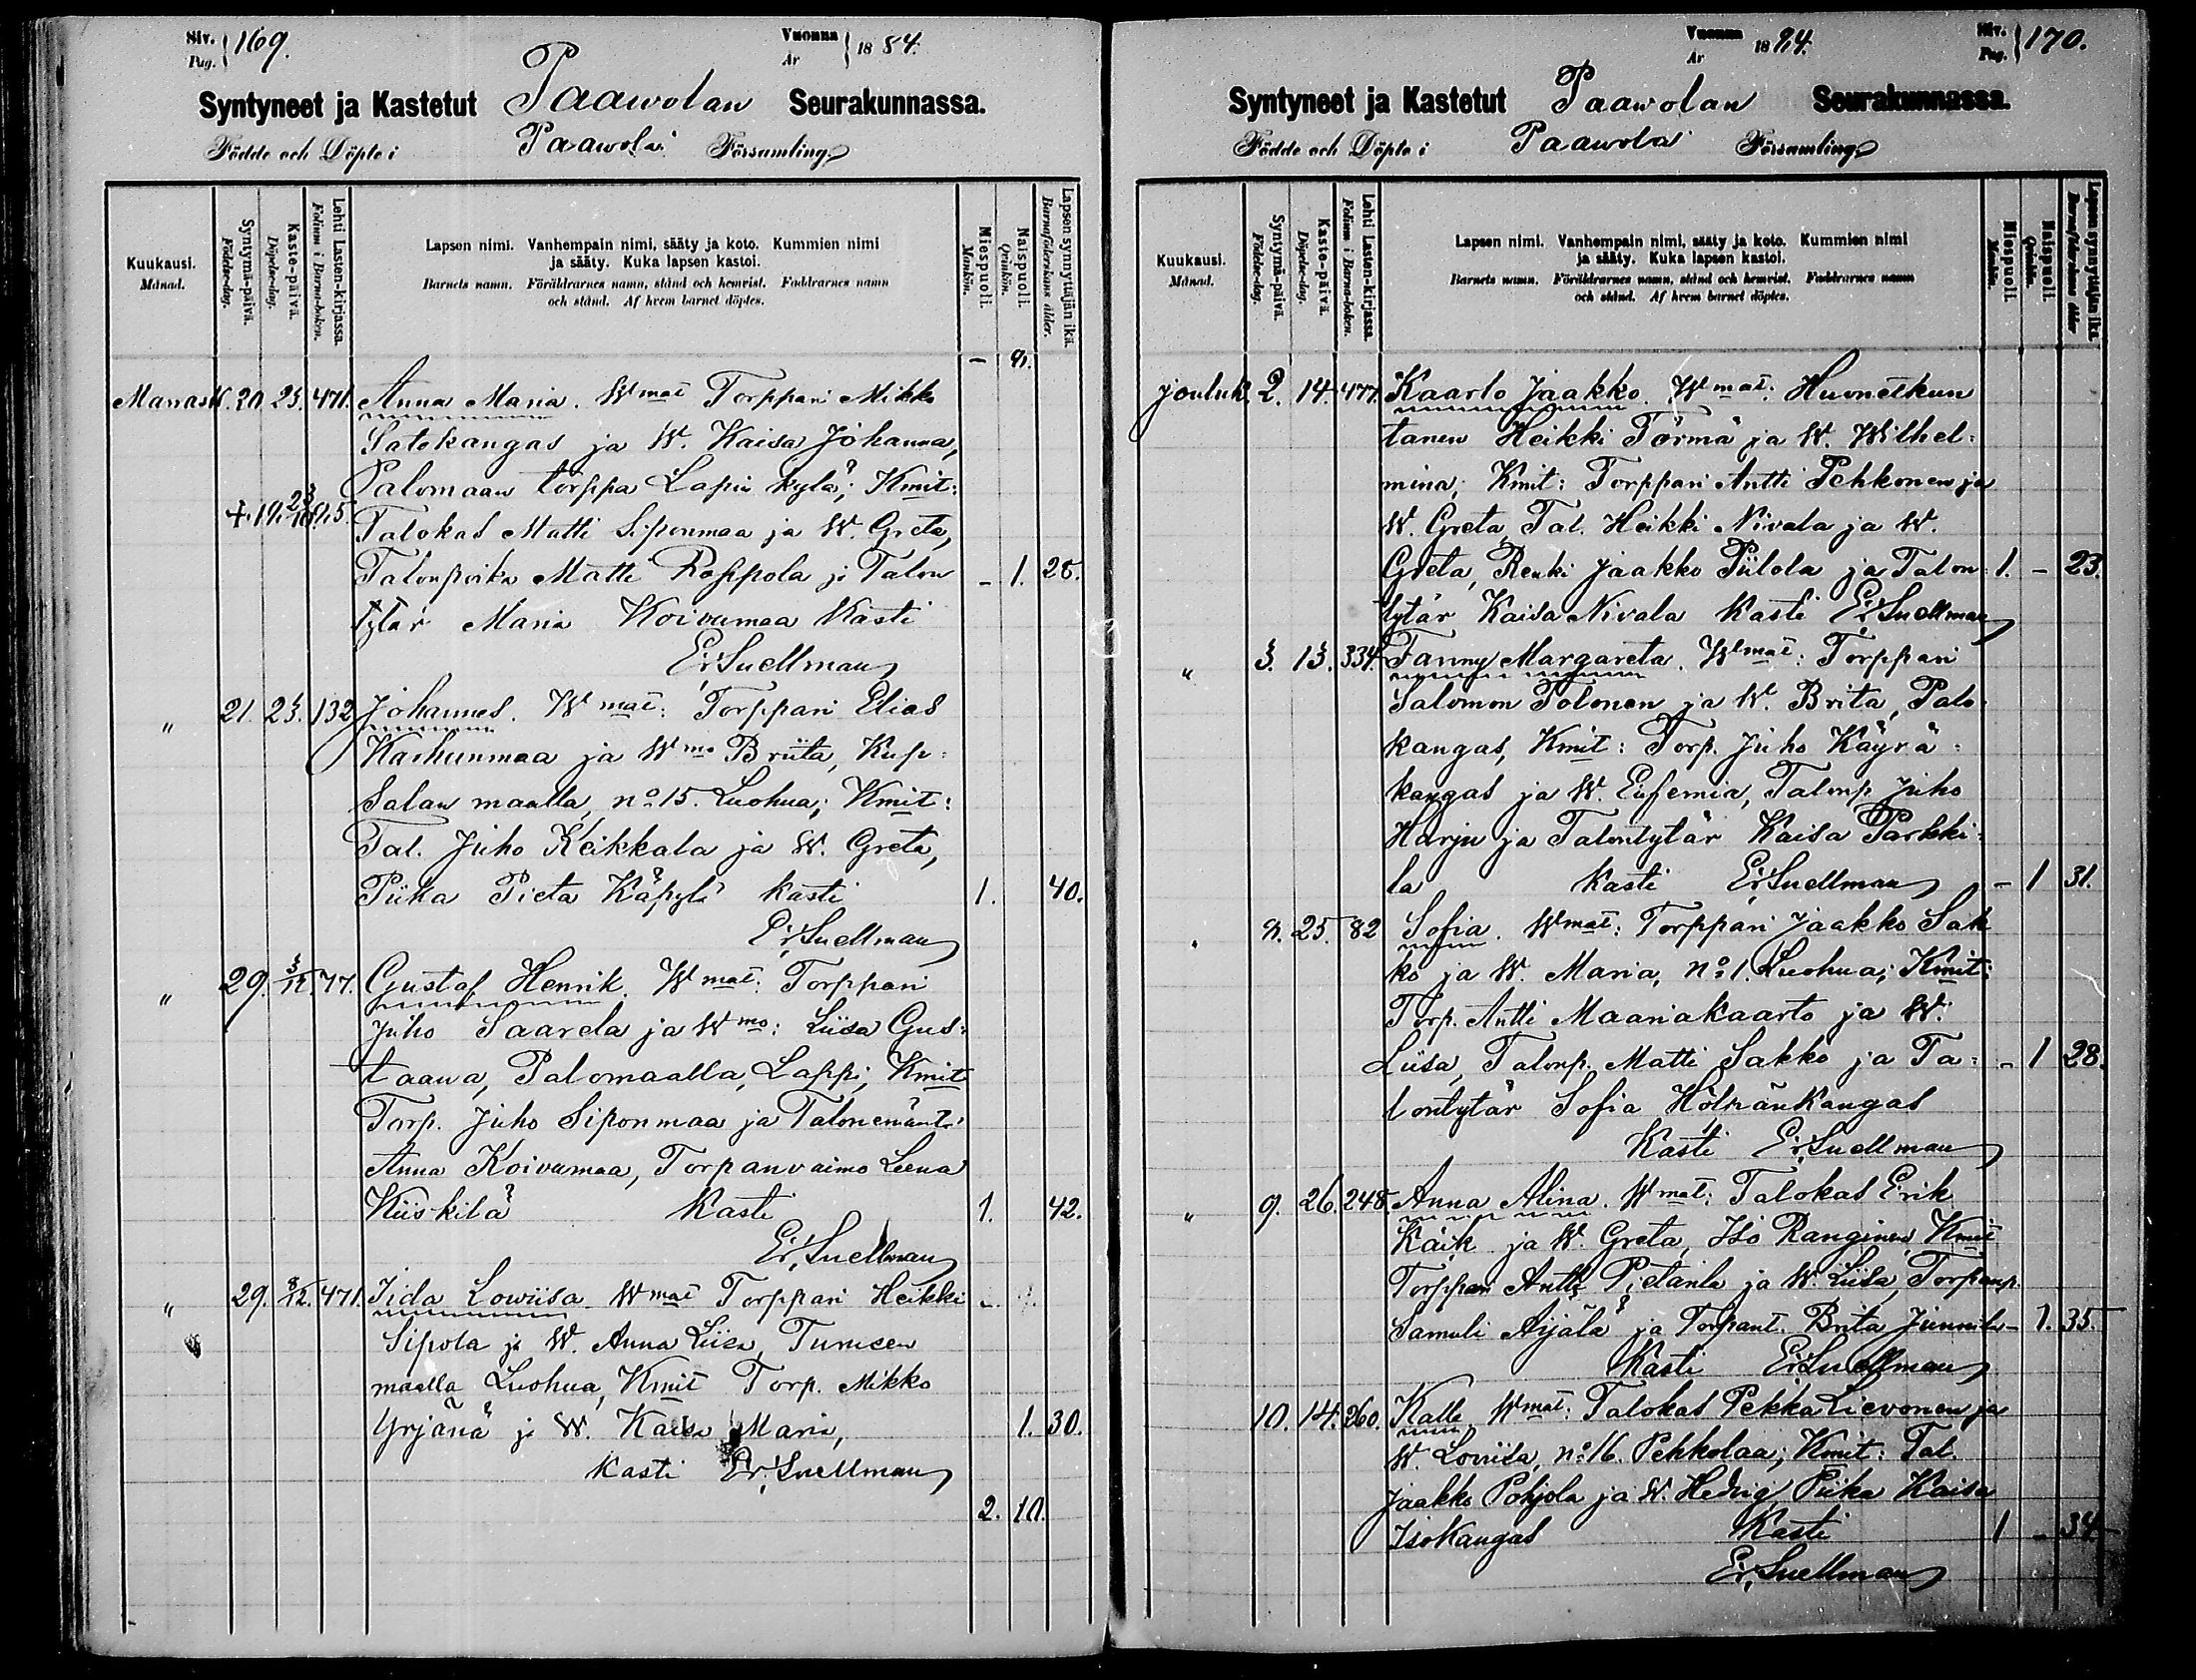 Siv. Pag. 169.
Vuonna År 1884.
Syntyneet ja Kastetut Paawolan Seurakunnassa.
Födde och Döpte i Paawola Församling
Kuukausi. Månad.
Syntymä-päivä. Födelse-dag.
Kaste-päivä. Döpelse-dag.
Lehti Lasten-kirjassa. Folium i Barna-boken.
Lapsen nimi. Vanhempain nimi, sääty ja koto. Kummien nimi
ja sääty. Kuka lapsen kastoi.
Barnets namn. Föräldrarnes namn, stånd och hemvist. Faddrarnes namn
och stånd. Af hvem barnet döptes.
Miespuoli. Mankön.
Naispuoli. Qvinkön.
Lapsen synnyttäjän ikä. Barnaföderskans ålder.
Marrask. 20. 23. 471. Anna Maria. Wmat Torppari Mikko
Satokangas ja W. Kaisa Johanna,
Palomaan torppa Lapin kylä; Kmit:
Talokas Matti Siponmaa ja W. Greta,
Talonpoika Matti Roppola ja Talon - 1. 28.
tytär Maria Koivumaa Kasti
Er. Snellman
" 21. 23. 132 Johannes. Wmat: Torppari Elias
Karhunmaa ja Wmo Briita, Kup=
salan maalla, no 15. Luohua; Kmit:
Tal. Juho Keikkala ja W. Greta,
Piika Pieta Käpylä kasti 1. 40.
Er. Snellman
" 29. 3/12. 77. Gustaf Henrik. Wmat: Torppari
Juho Saarela ja Wmo: Liisa Gus=
taava, Palomaalla, Lappi, Kmit
Torp. Juho Siponmaa ja Talonemäntä
Anna Koivumaa, Torpanvaimo Leena
Kiiskilä Kasti 1. 42.
Er. Snellman
" 29. 8/12. 471. Iida Lowiisa Wmat Torppari Heikki
Sipola ja W. Anna Liisa, Turusen
maalla Luohua, Kmit Torp. Mikko
Yrjänä ja W. Kaisa Maria, 1. 30.
Kasti Er. Snellman
2. 10.
Vuonna År 1884.
Siv. Pag. 170.
Syntyneet ja Kastetut Paawolan Seurakunnassa.
Födde och Döpte i Paawola Församling
Kuukausi. Månad.
Syntymä-päivä. Födelse-dag.
Kaste-päivä. Döpelse-dag.
Lehti Lasten-kirjassa. Folium i Barna-boken.
Lapsen nimi. Vanhempain nimi, sääty ja koto. Kummien nimi
ja sääty. Kuka lapsen kastoi.
Barnets namn. Föräldrarnes namn, stånd och hemvist. Faddrarnes namn
och stånd. Af hvem barnet döptes.
Miespuoli. Mankön.
Naispuoli. Qvinkön.
Lapsen synnyttäjän ikä. Barnaföderskans ålder
Jouluk. 2. 14. 477. Kaarlo Jaakko. Wmat: Huonetkun
tanen Heikki Törmä ja W. Wilhel=
mina; Kmit: Torppari Antti Pehkonen ja
W. Greta, Tal. Heikki Nivala ja W.
Greta, Renki Jaakko Piilola ja Talon= 1. - 23.
tytär Kaisa Nivala Kasti Er. Snellman
" 3. 13. 334 Fanny Margareta. Wmat: Torppari
Salomon Polonen ja W. Brita, Palo
kangas, Kmit: Torp. Juho Käyrä=
kangas ja W. Eufemia, Talonp. Juho
Harju ja Talontytär Kaisa Parkki=
la Kasti Er. Snellman - 1 31.
8. 25. 82 Sofia. Wmat: Torppari Jaakko Sak
ko ja W. Maria, no 1. Luohua; Kmit:
Torp. Antti Maaniakaarto ja W.
Liisa, Talonp. Matti Sakko ja Ta= - 1 28.
lontytär Sofia Hölmänkangas
Kasti Er. Snellman
" 9. 26. 248. Anna Alina. Wmat: Talokas Erik
Kaik ja W. Greta, Iso Ranginen, Kmit
Torppari Antti Pietarila ja W. Liisa, Torpanp.
Samuli Äijälä ja Torpant. Brita Junnila - 1. 35.
Kasti Er. Snellman
10. 14. 260. Kalle Wmat: Talokas Pekka Lievonen ja
W. Lowiisa, no 16. Pehkolaa; Kmit: Tal.
Jaakko Pohjola ja W. Hedvig, Piika Kaisa
Isokangas Kasti 1 - 34
Er. Snellman